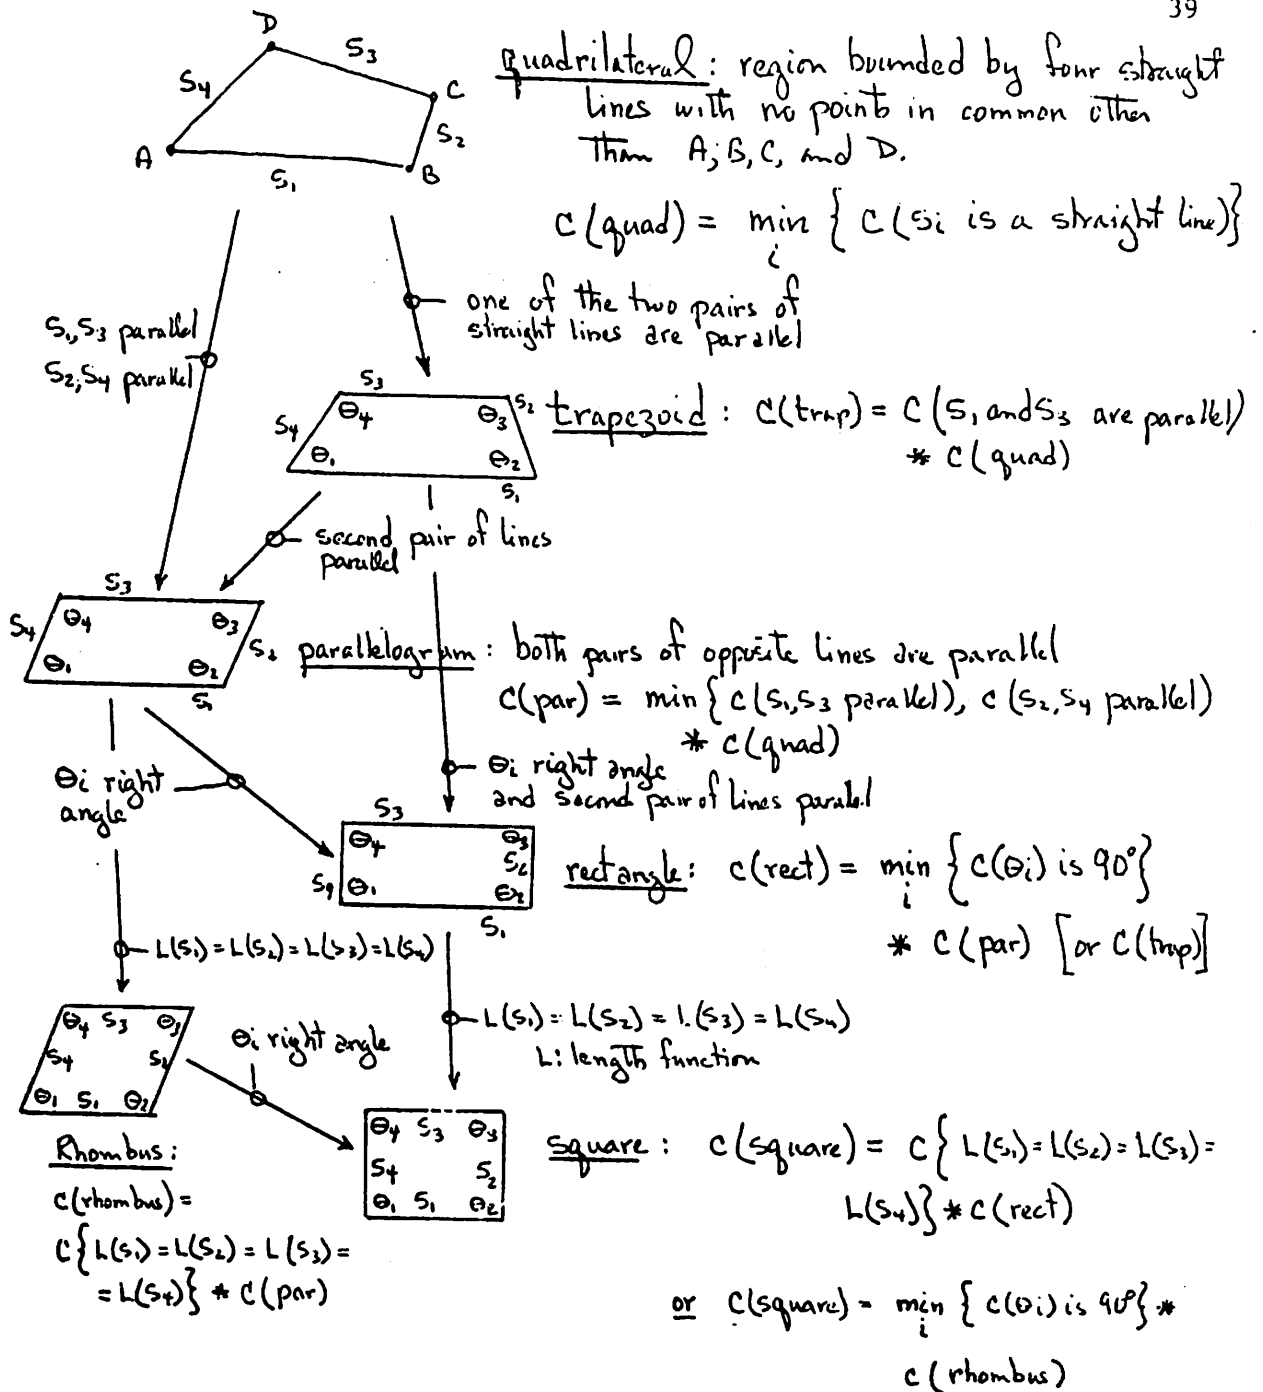 39
D
S3
S4
C
S2
A
B
S1
quadrilateral: region bounded by four straight
lines with no points in common other
than A, B, C, and D.
C(quad) = min { C(Si is a straight line)}
i
S1,S3 parallel
S2,S4 parallel
one of the two pairs of
straight lines are parallel
S3
S4 θ4 θ3 S2
θ1 θ2
S1
trapezoid: C(trap) = C(S1 and S3 are parallel)
* C(quad)
second pair of lines
parallel
S3
S4 θ4 θ3
θ1 θ2 S2
S1
parallelogram: both pairs of opposite lines are parallel
C(par) = min { C(S1,S3 parallel), C(S2,S4 parallel)
* C(quad)
θi right
angle
θi right angle
and second pair of lines parallel
S3
θ4 θ3
S2
S4 θ1 θ2
S1
rectangle: C(rect) = min { C(θi) is 90°}
i
* C(par) [or C(trap)]
L(S1) = L(S2) = L(S3) = L(S4)
L(S1) = L(S2) = L(S3) = L(S4)
L: length function
θ4 S3 θ3
S4 S2
θ1 S1 θ2
θi right angle
Rhombus:
C(rhombus) =
C{ L(S1) = L(S2) = L(S3) =
= L(S4)} * C(par)
θ4 S3 θ3
S4 S2
θ1 S1 θ2
square: C(square) = C{ L(S1) = L(S2) = L(S3) =
L(S4)} * C(rect)
or C(square) = min { C(θi) is 90°} *
i
C(rhombus)